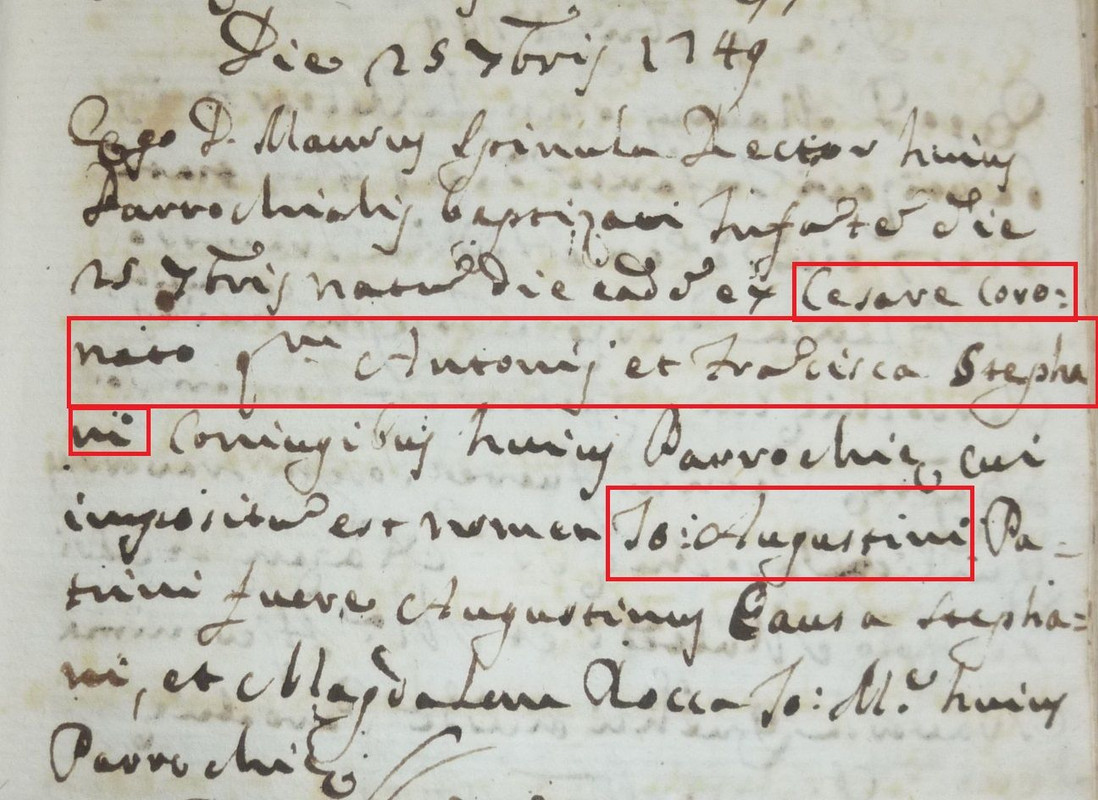 Die 25 7bris 1749
Ego D. Maurus Spinula Rector huius
Parrochialis baptizavi Infãtẽ die
25 7bris natũ die eadẽ ex Cesare Coro:
nato qm Antonij et Frãcisca Stepha
ni Coniugibus huius Parrochię cui
impositũ est nomen Jo: Augustini Pa-
trini fuere Augustinus Causa Stepha=
ni, et Magdalena Rocca Jo: M.ę huius
Parrochię